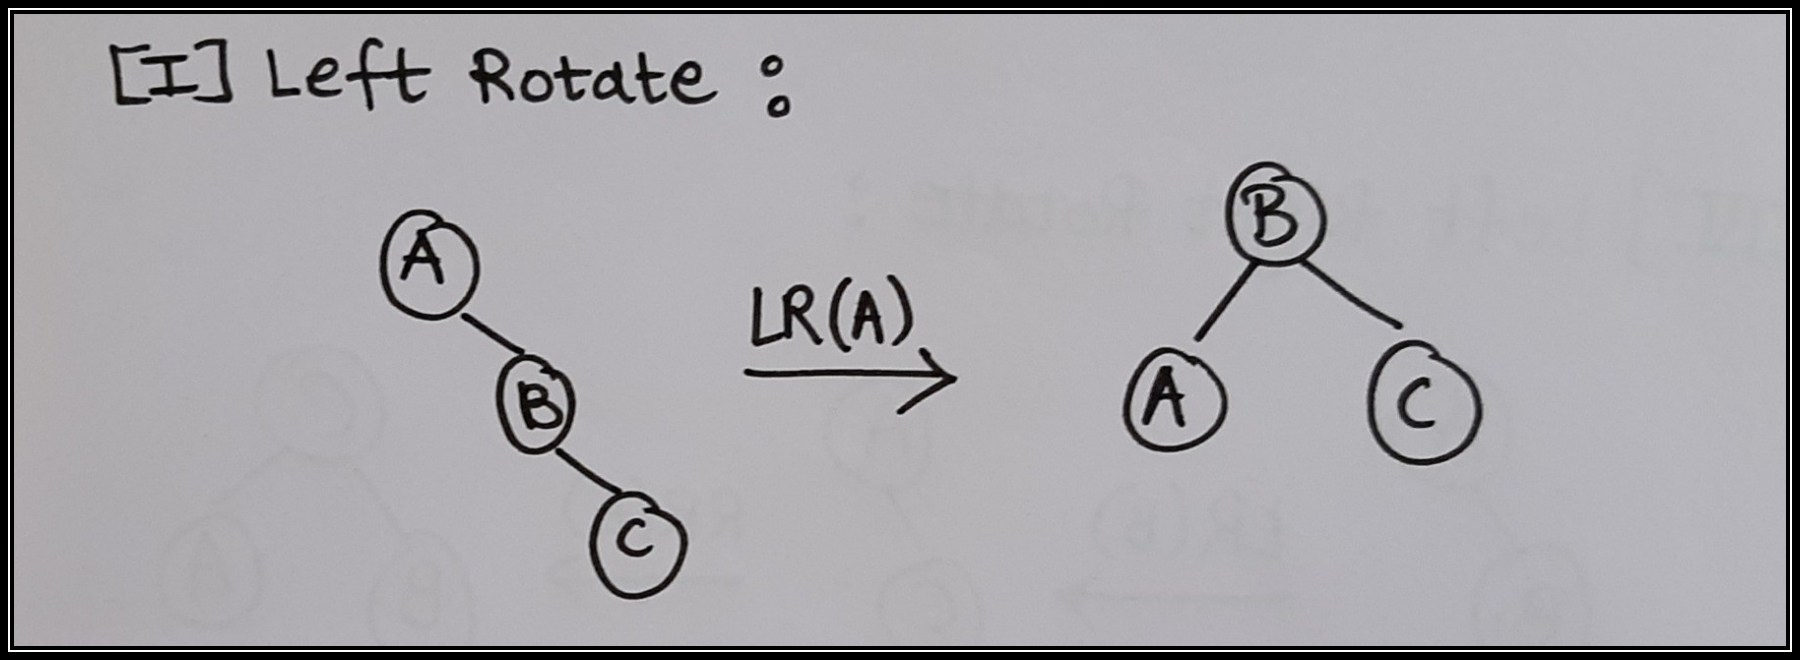 [I] Left Rotate :
A
B
C
LR(A)
B
A
C